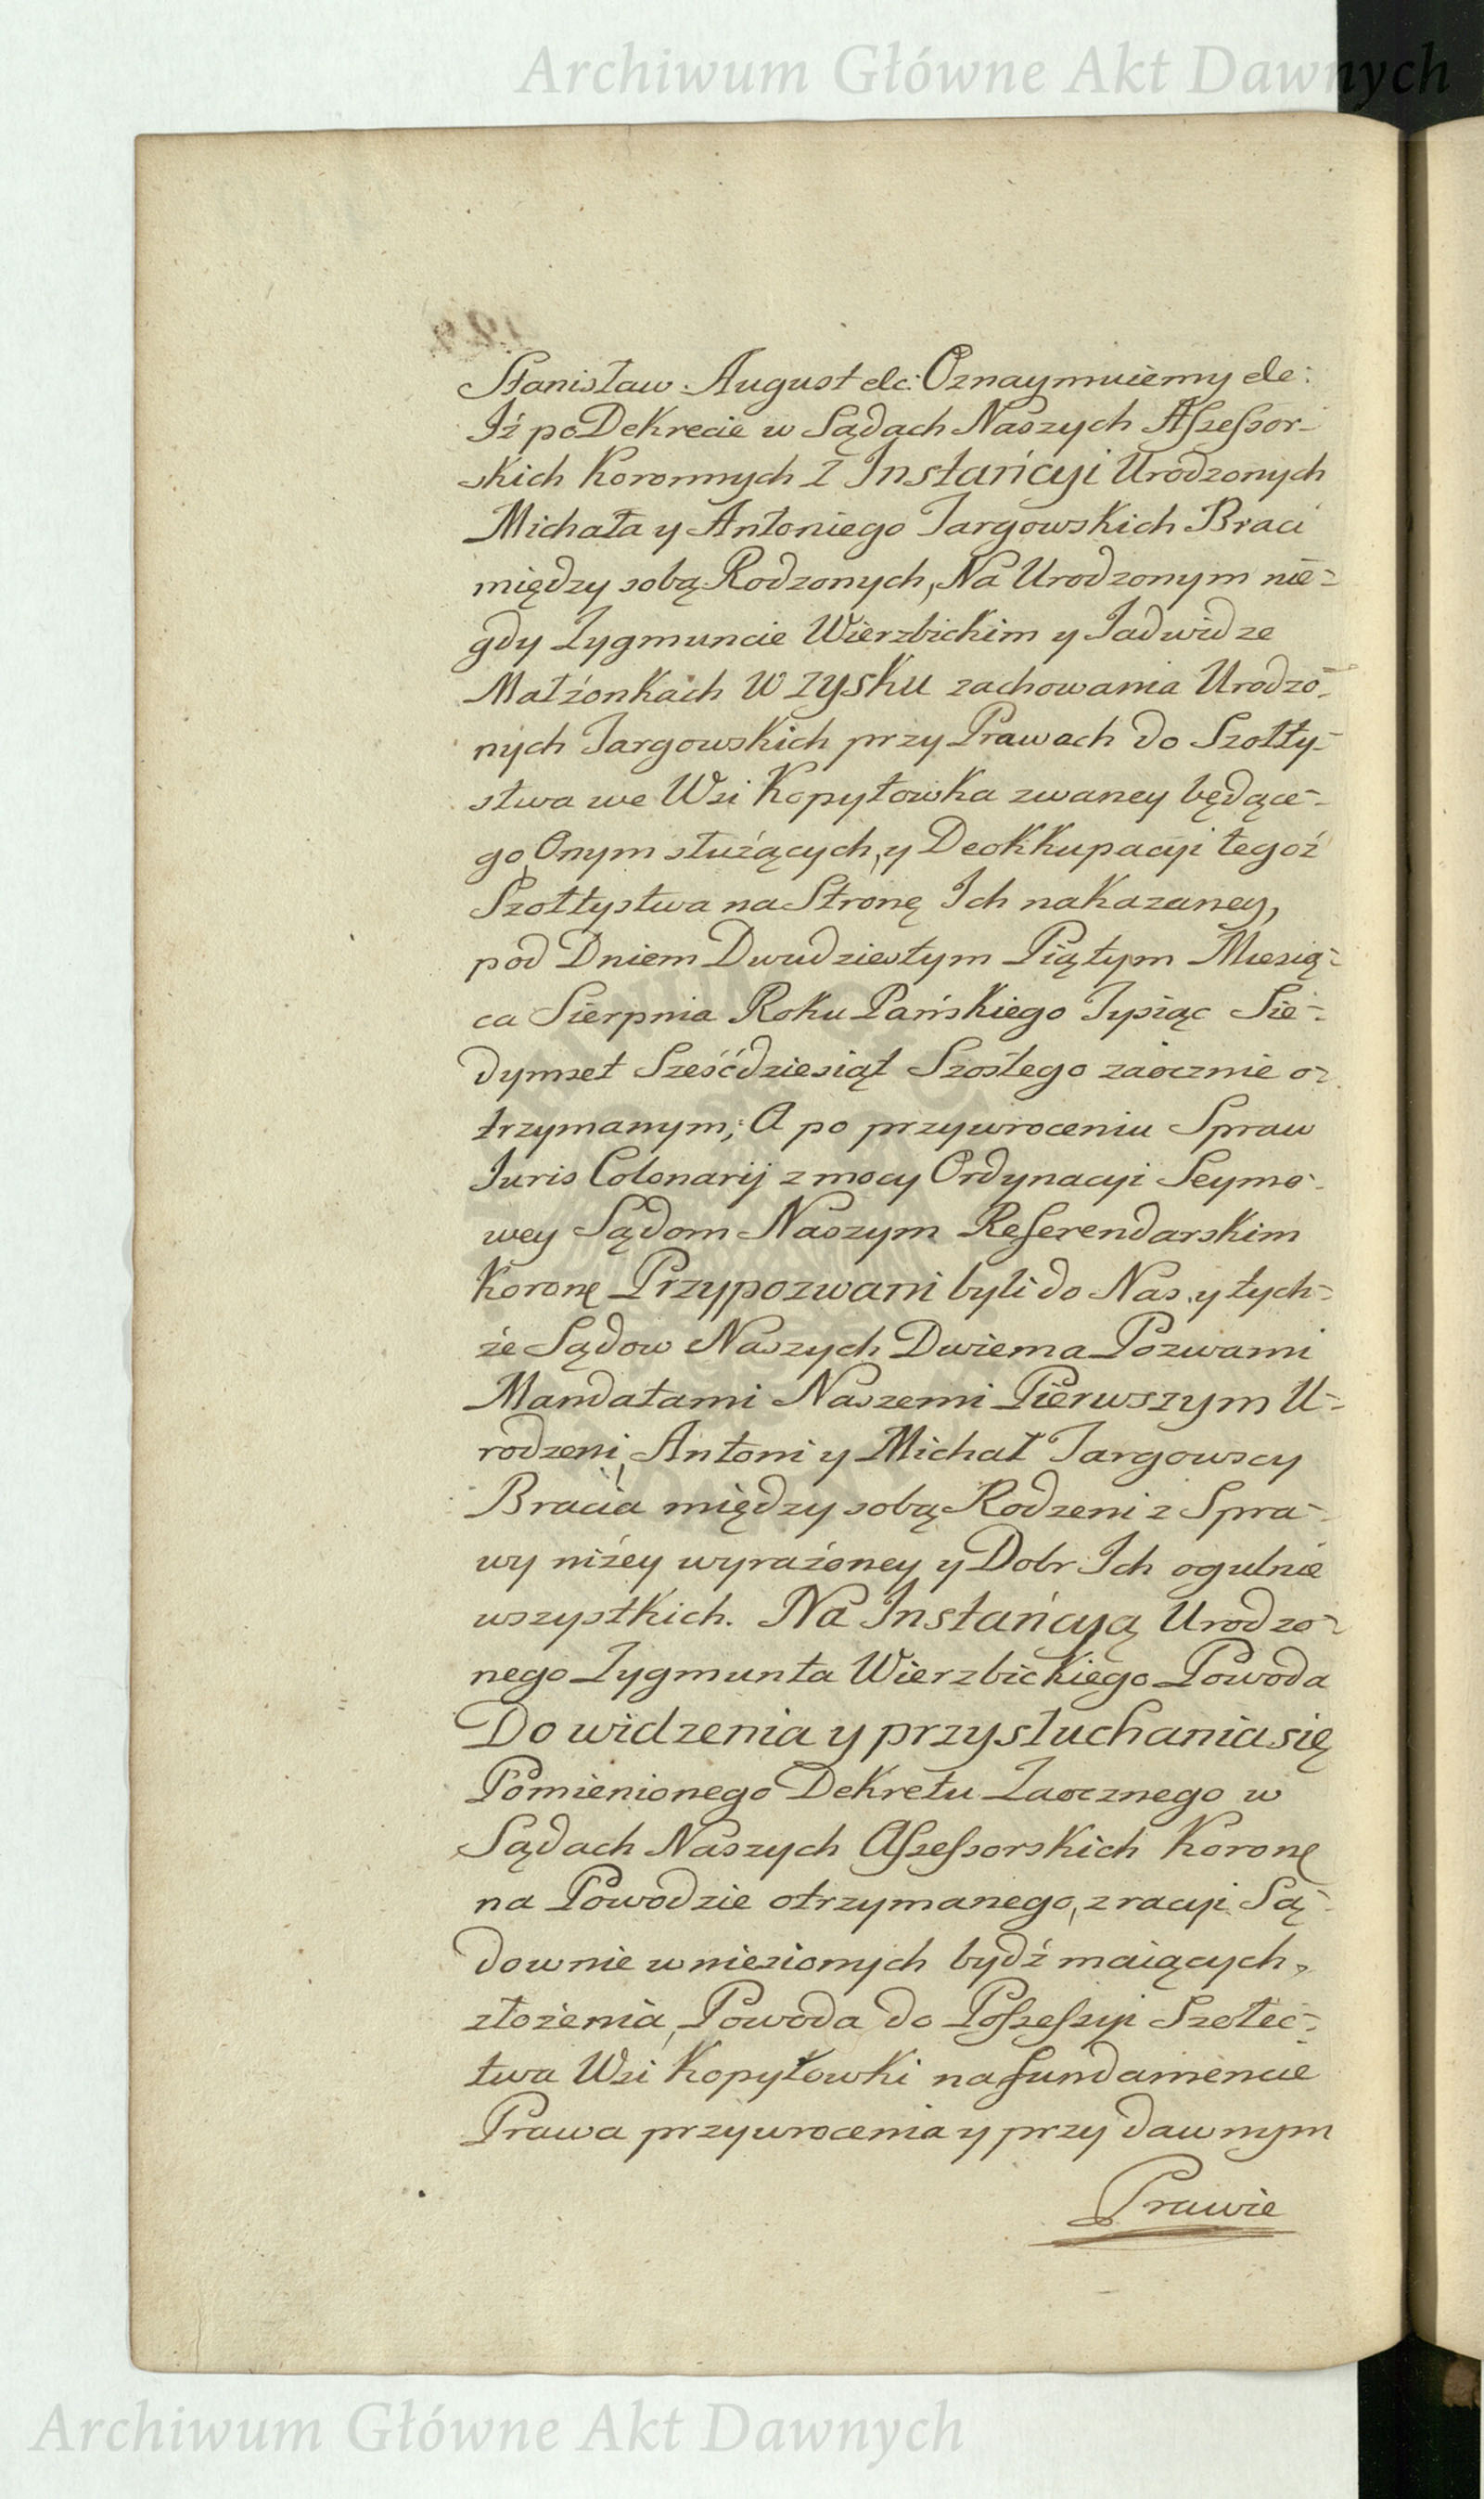 Archiwum Główne Akt Dawnych
Stanisław August etc: Oznaymuiemy etc:
Iż po Dekrecie w Sądach Naszych Assessor-
skich Koronnych Z Instańcyi Urodzonych
Michała y Antoniego Targowskich Braci
między sobą Rodzonych, Na Urodzonym nie-
gdy Zygmuncie Wierzbickim y Jadwidze
Małżonkach W zysku zachowania Urodzo-
nych Targowskich przy Prawach do Szołty-
stwa we Wsi Kopytowka zwaney będące-
go, Onym służących, y Deokkupacyi tegoż
Szołtystwa na Stronę Ich nakazaney,
pod Dniem Dwudziestym Piątym Miesią-
ca Sierpnia Roku Pańskiego Tysiąc Sie-
dymset Sześćdziesiąt Szostego zaocznie o-
trzymanym; A po przywroceniu Spraw
Juris Colonarij z mocy Ordynacyi Seymo-
wey Sądom Naszym Referendarskim
Koronę Przypozwani byli do Nas y tych-
że Sądow Naszych Dwiema Pozwami
Mandatami Naszemi Pierwszym U-
rodzeni, Antoni y Michał Targowscy
Bracia między sobą Rodzeni z Spra-
wy niżey wyrażoney y Dobr Ich ogulnie
wszystkich. Na Instańcyą Urodzo-
nego Zygmunta Wierzbickiego Powoda
Do widzenia y przysłuchania się
Pomienionego Dekretu Zaocznego w
Sądach Naszych Assessorskich Koronę
na Powodzie otrzymanego, z racyi Są-
downie wniesionych bydź maiących,
złożenia, Powoda do Possessyi Szołec-
twa Wsi Kopytowki na fundamencie
Prawa przywrocenia y przy dawnym
Prawie
Archiwum Główne Akt Dawnych